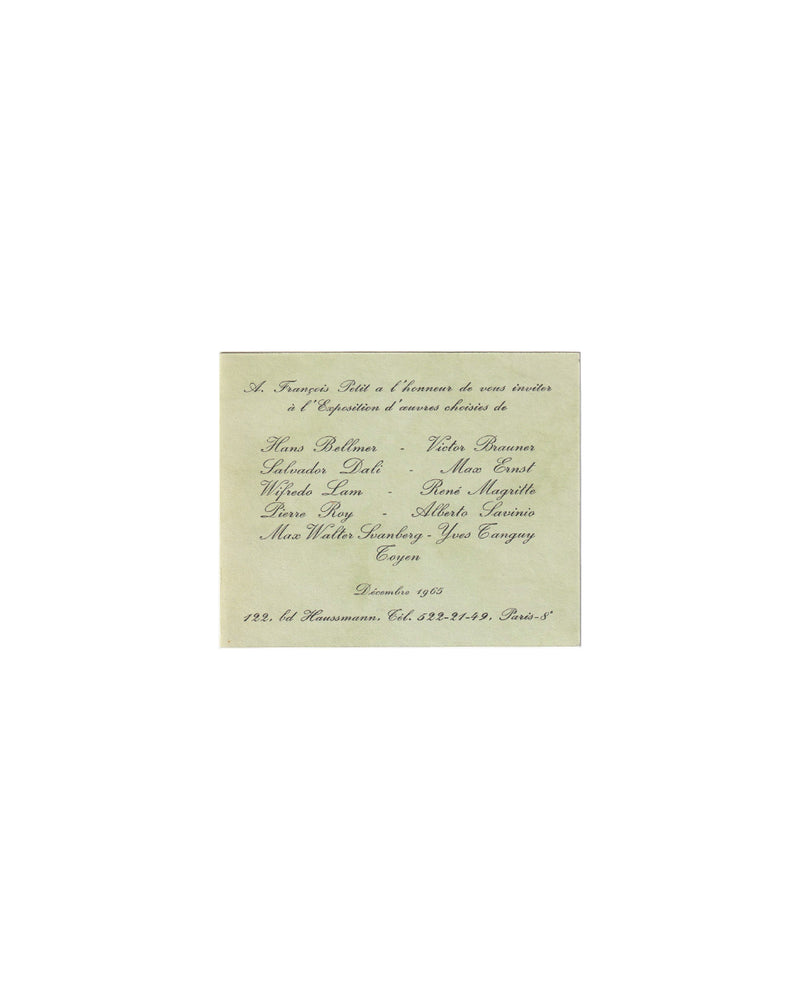 A. François Petit a l'honneur de vous inviter
à l'Exposition d'œuvres choisies de
Hans Bellmer - Victor Brauner
Salvador Dali - Max Ernst
Wifredo Lam - René Magritte
Pierre Roy - Alberto Savinio
Max Walter Svanberg - Yves Tanguy
Toyen
Décembre 1965
122, bd Haussmann. Tél. 522-21-49. Paris-8e